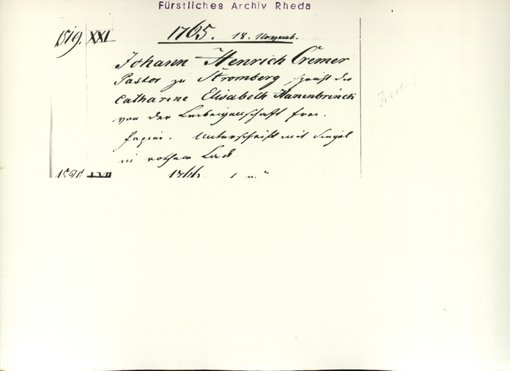 Fürstliches Archiv Rheda
1519. XXI. 1765. 18. August.
Johann Henrich Cremer
Pastor zu Stromberg, spricht die
Catharine Elisabeth Hanenbrinck
von der Leibeigenschaft frei.
Papier. Unterschrift mit Siegel
in rothem Lack
1766